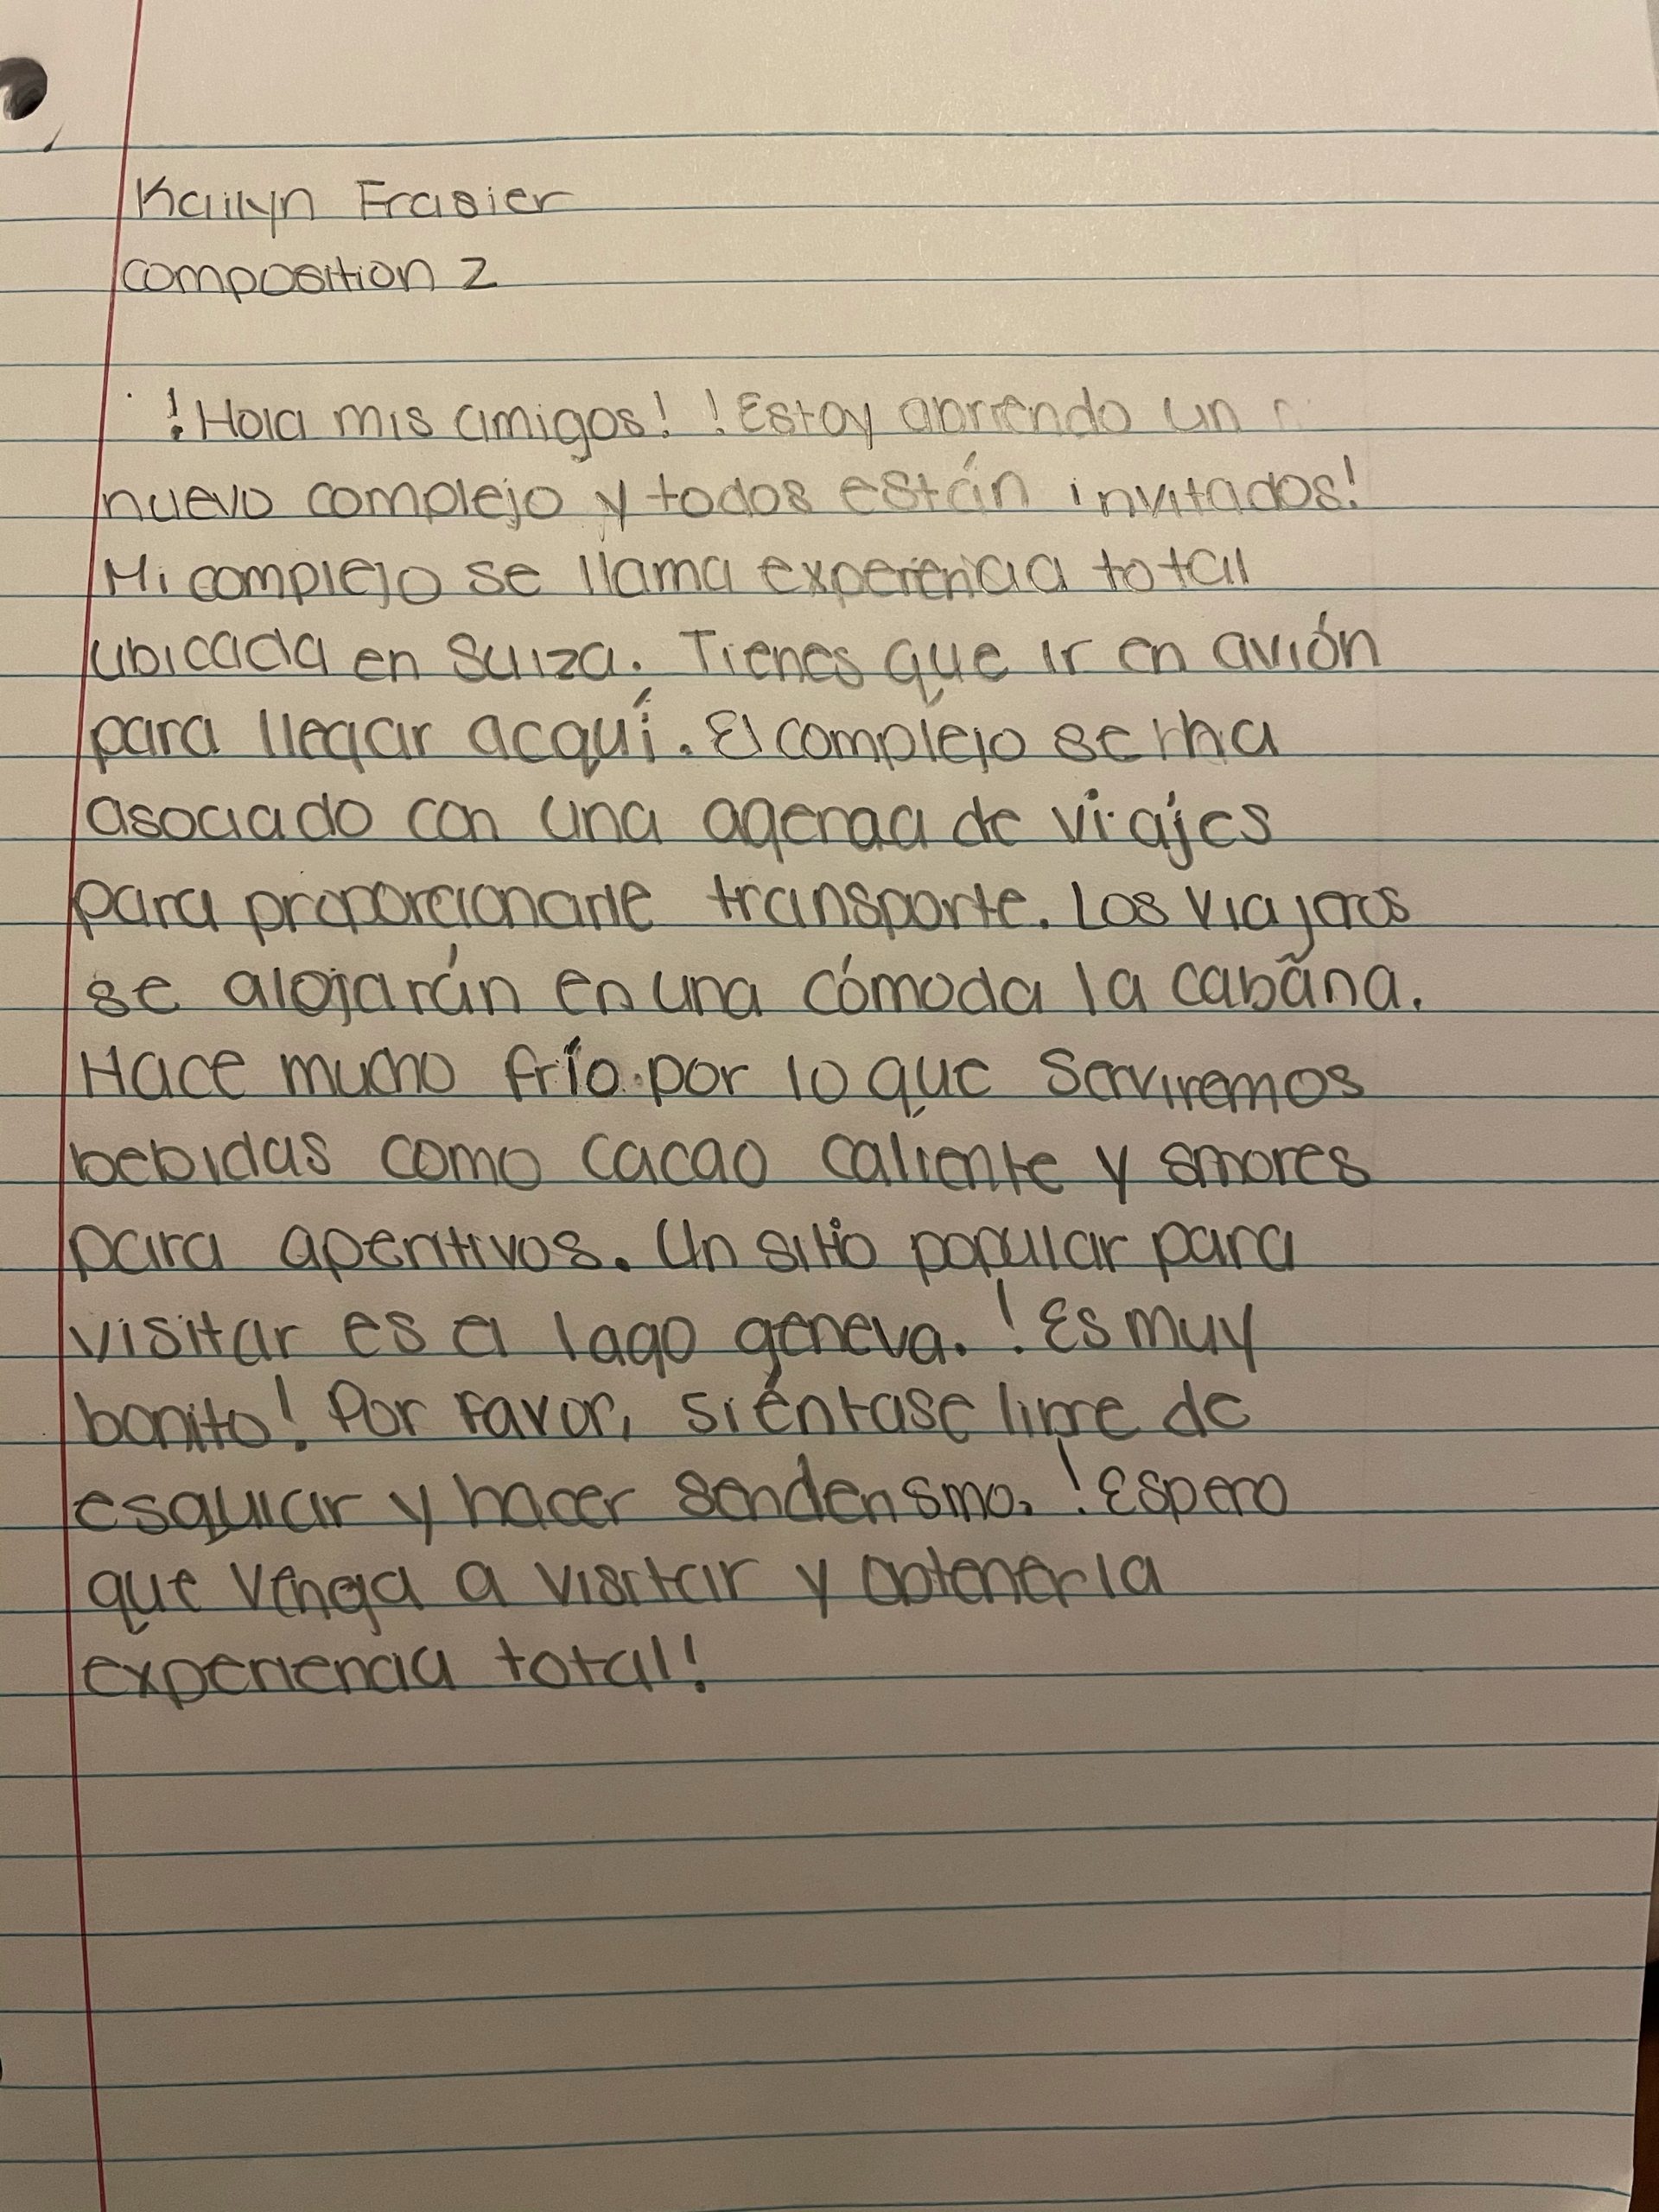 Kailyn Frasier
Composition 2
!Hola mis amigos! !Estoy abriendo un n
nuevo complejo y todos están invitados!
Mi complejo se llama experiencia total
ubicada en Suiza. Tienes que ir en avión
para llegar acquí. El complejo se ha
asociado con una agencia de viajes
para proporcionarle transporte. Los viajeros
se alojarán en una cómoda la cabãna.
Hace mucho frío por lo que serviremos
bebidas como cacao caliente y smores
para aperitivos. Un sitio popular para
visitar es el lago geneva. !Es muy
bonito! Por favor, siéntase libre de
esquiar y hacer senderismo. !Espero
que venga a visitar y obtener la
experiencia total!